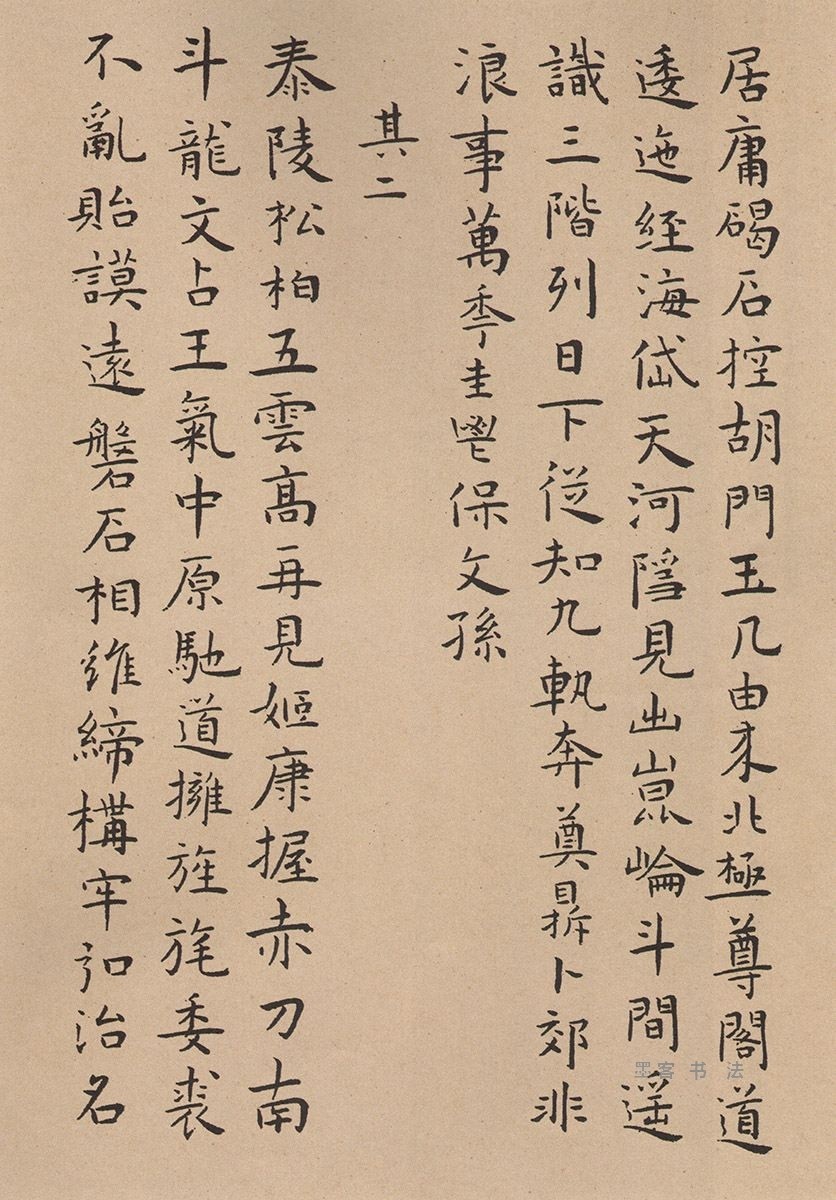 居庸碣石控胡門玉几由来北極尊閣道
逶迤經海岱天河隱見出崑崘斗間遥
識三階列日下従知九軌奔奠鼎卜郊非
浪事萬季圭鬯保文孫
其二
泰陵松柏五雲高再見姬康握赤刀南
斗龍文占王氣中原馳道擁旌旄委裘
不亂貽謨遠磐石相維締構牢弘治名
墨客书法